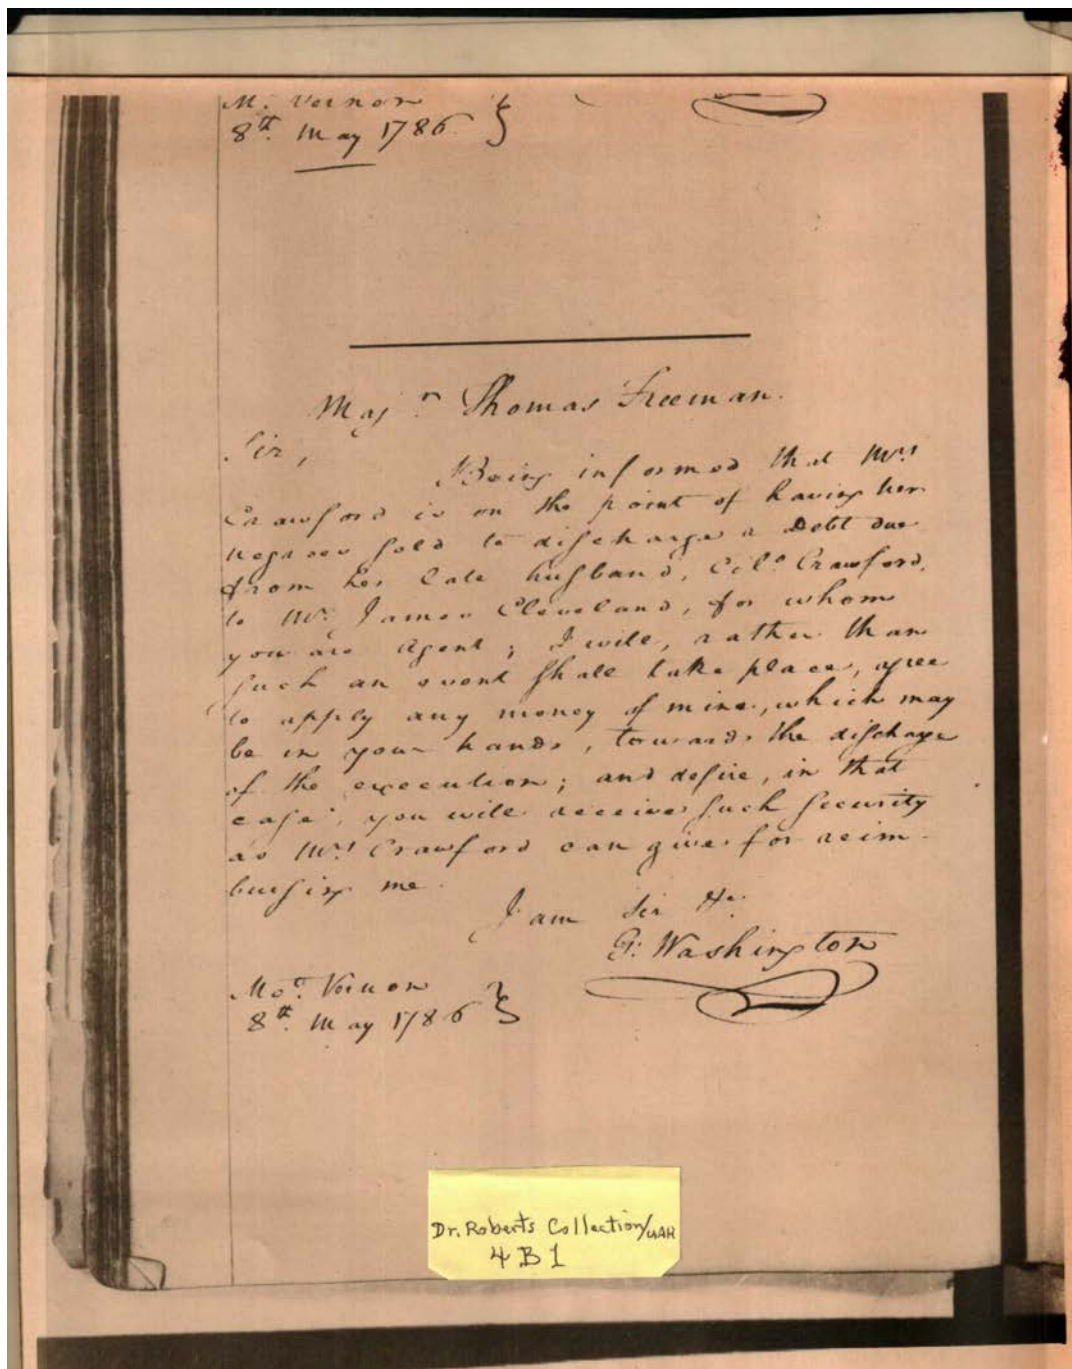 M. Vernon
8th. May 1786.
Majr. Thomas Freeman.
Sir,
Being informed that Mrs
Crawford is on the point of having her
negroes sold to discharge a Debt due
from her late husband, Colo. Crawford,
to Mr. James Cleveland, for whom
you are Agent; I will, rather than
such an event shall take place, agree
to apply any money of mine, which may
be in your hands, towards the discharge
of the execution; and desire, in that
case, you will receive such security
as Mrs. Crawford can give for reim-
bursing me.
I am Sir &c.
G: Washington
Mot. Vernon
8th. May 1786
Dr. Roberts Collection/UAH
4B1